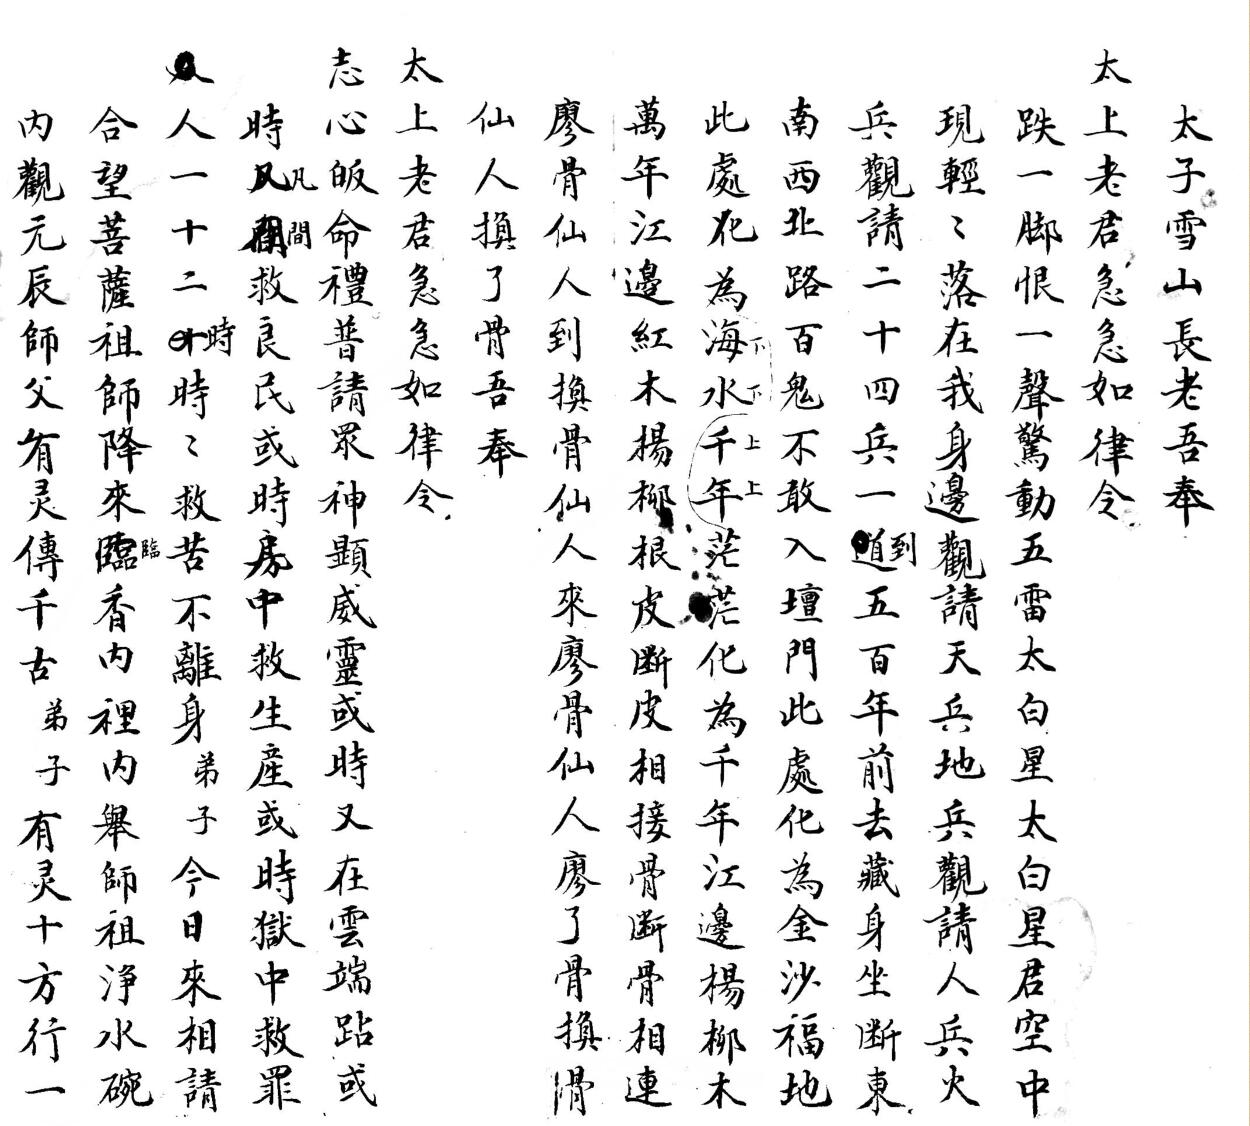 太子雪山長老吾奉
太上老君急急如律令
跌一脚恨一聲驚動五雷太白星太白星君空中
現輕〻落在我身邊觀請天兵地兵觀請人兵火
兵觀請二十四兵一到五百年前去藏身坐断東
南西北路百鬼不敢入壇門此處化為金沙福地
此處化為海水下下千年上上茫茫化為千年江邊楊柳木
萬年江邊紅木楊柳根皮断皮相接骨断骨相連
廖骨仙人到換骨仙人來廖骨仙人廖了骨換滑
仙人換了骨吾奉
太上老君急急如律令
志心皈命禮普請眾神顕威靈或時又在雲端跕或
時凡間救良民或時房中救生産或時獄中救罪
人一十二時時〻救苦不離身弟子今日來相請
合望菩薩祖師降來臨香内裡内舉師祖淨水碗
内觀元辰師父有灵傳千古弟子有灵十方行一